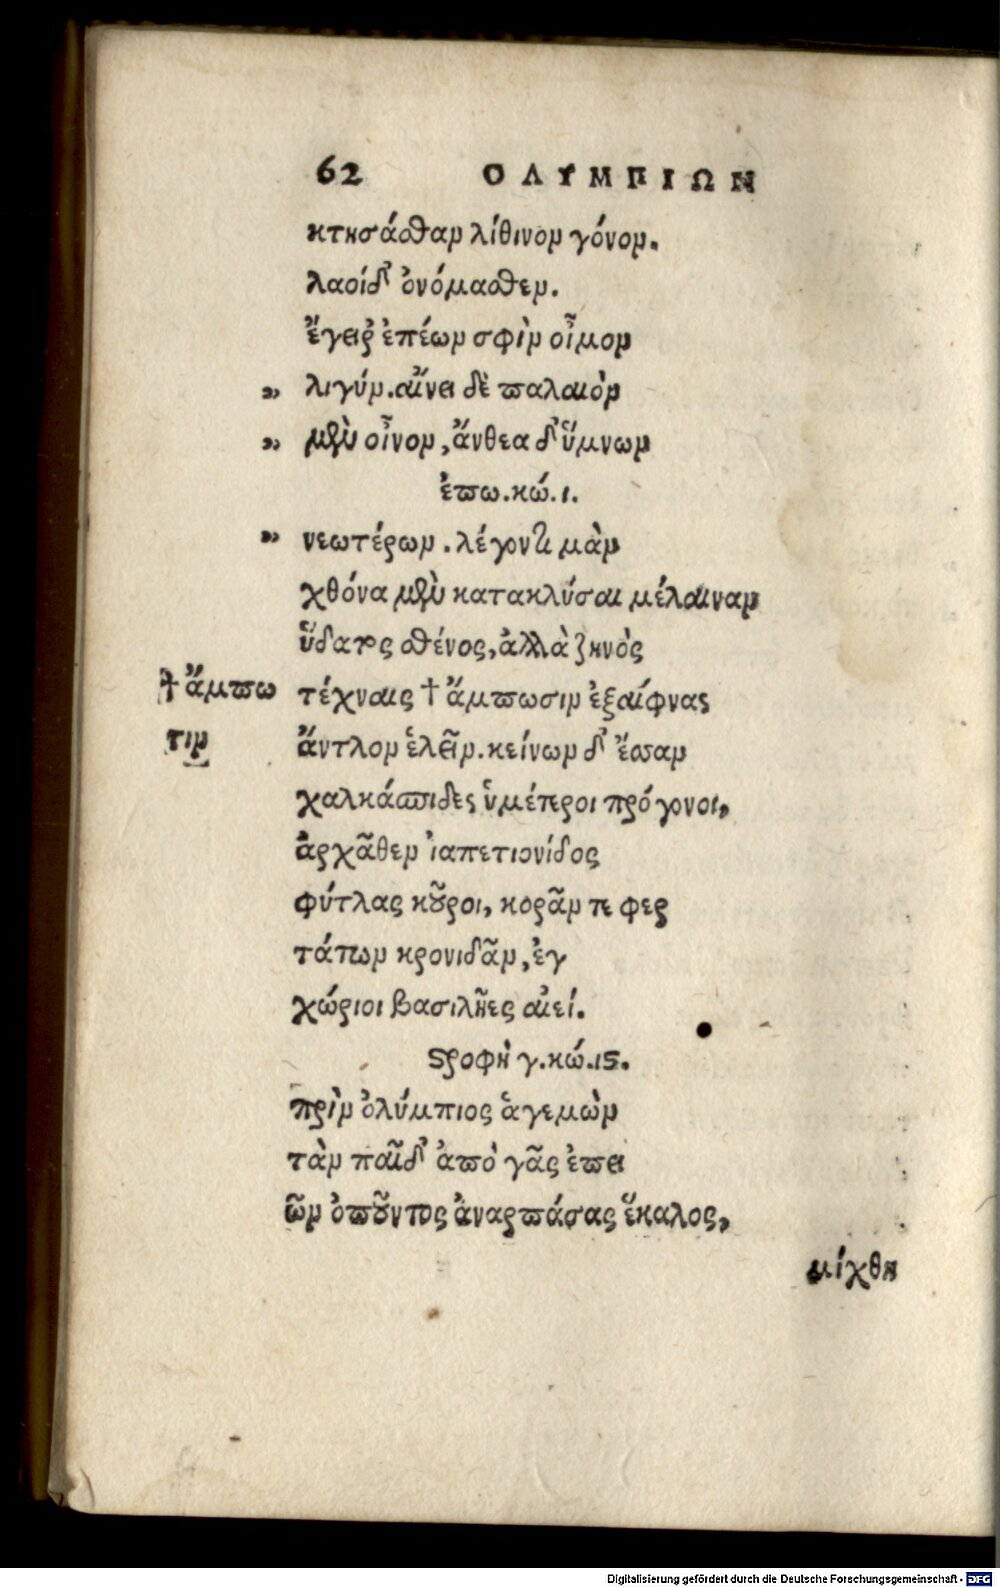 62 ΟΛΥΜΠΙΩΝ
κτησάσθαν λίθινον γόνον.
λαοί δ' ὀνόμασθεν.
ἔγειρ' ἐπέων σφὶν οἶμον
„ λιγύν. αἴνει δὲ παλαιὸν
„ μὲν οἶνον, ἄνθεα δ' ὕμνων
ἐπω. κώ. ι.
„ νεωτέρων. λέγοντι μὰν
χθόνα μὲν κατακλύσαι μέλαιναν
ὕδατος σθένος, ἀλλὰ ζηνὸς
†ἄμπω τέχναις † ἄμπωσιν ἐξαίφνας
τιν ἄντλον ἑλεῖν. κείνων δ' ἔσσαν
χαλκάσπιδες ὑμέτεροι πρόγονοι,
ἀρχᾶθεν ἰαπετιονίδος
φύτλας κοῦροι, κορᾶν τε φερ
τάτων κρονιδᾶν, ἐγ
χώριοι βασιλῆες αἰεί.
στροφὴ γ. κώ. ις.
πρὶν ὀλύμπιος ἁγεμὼν
τὰν παῖδ' ἀπὸ γᾶς ἐπει
ῶν ὀποῦντος ἀναρπάσας ἕκαλος,
μίχθη
Digitalisierung gefördert durch die Deutsche Forschungsgemeinschaft - DFG